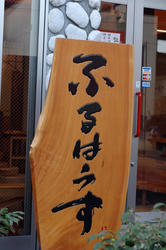 ふるはうす